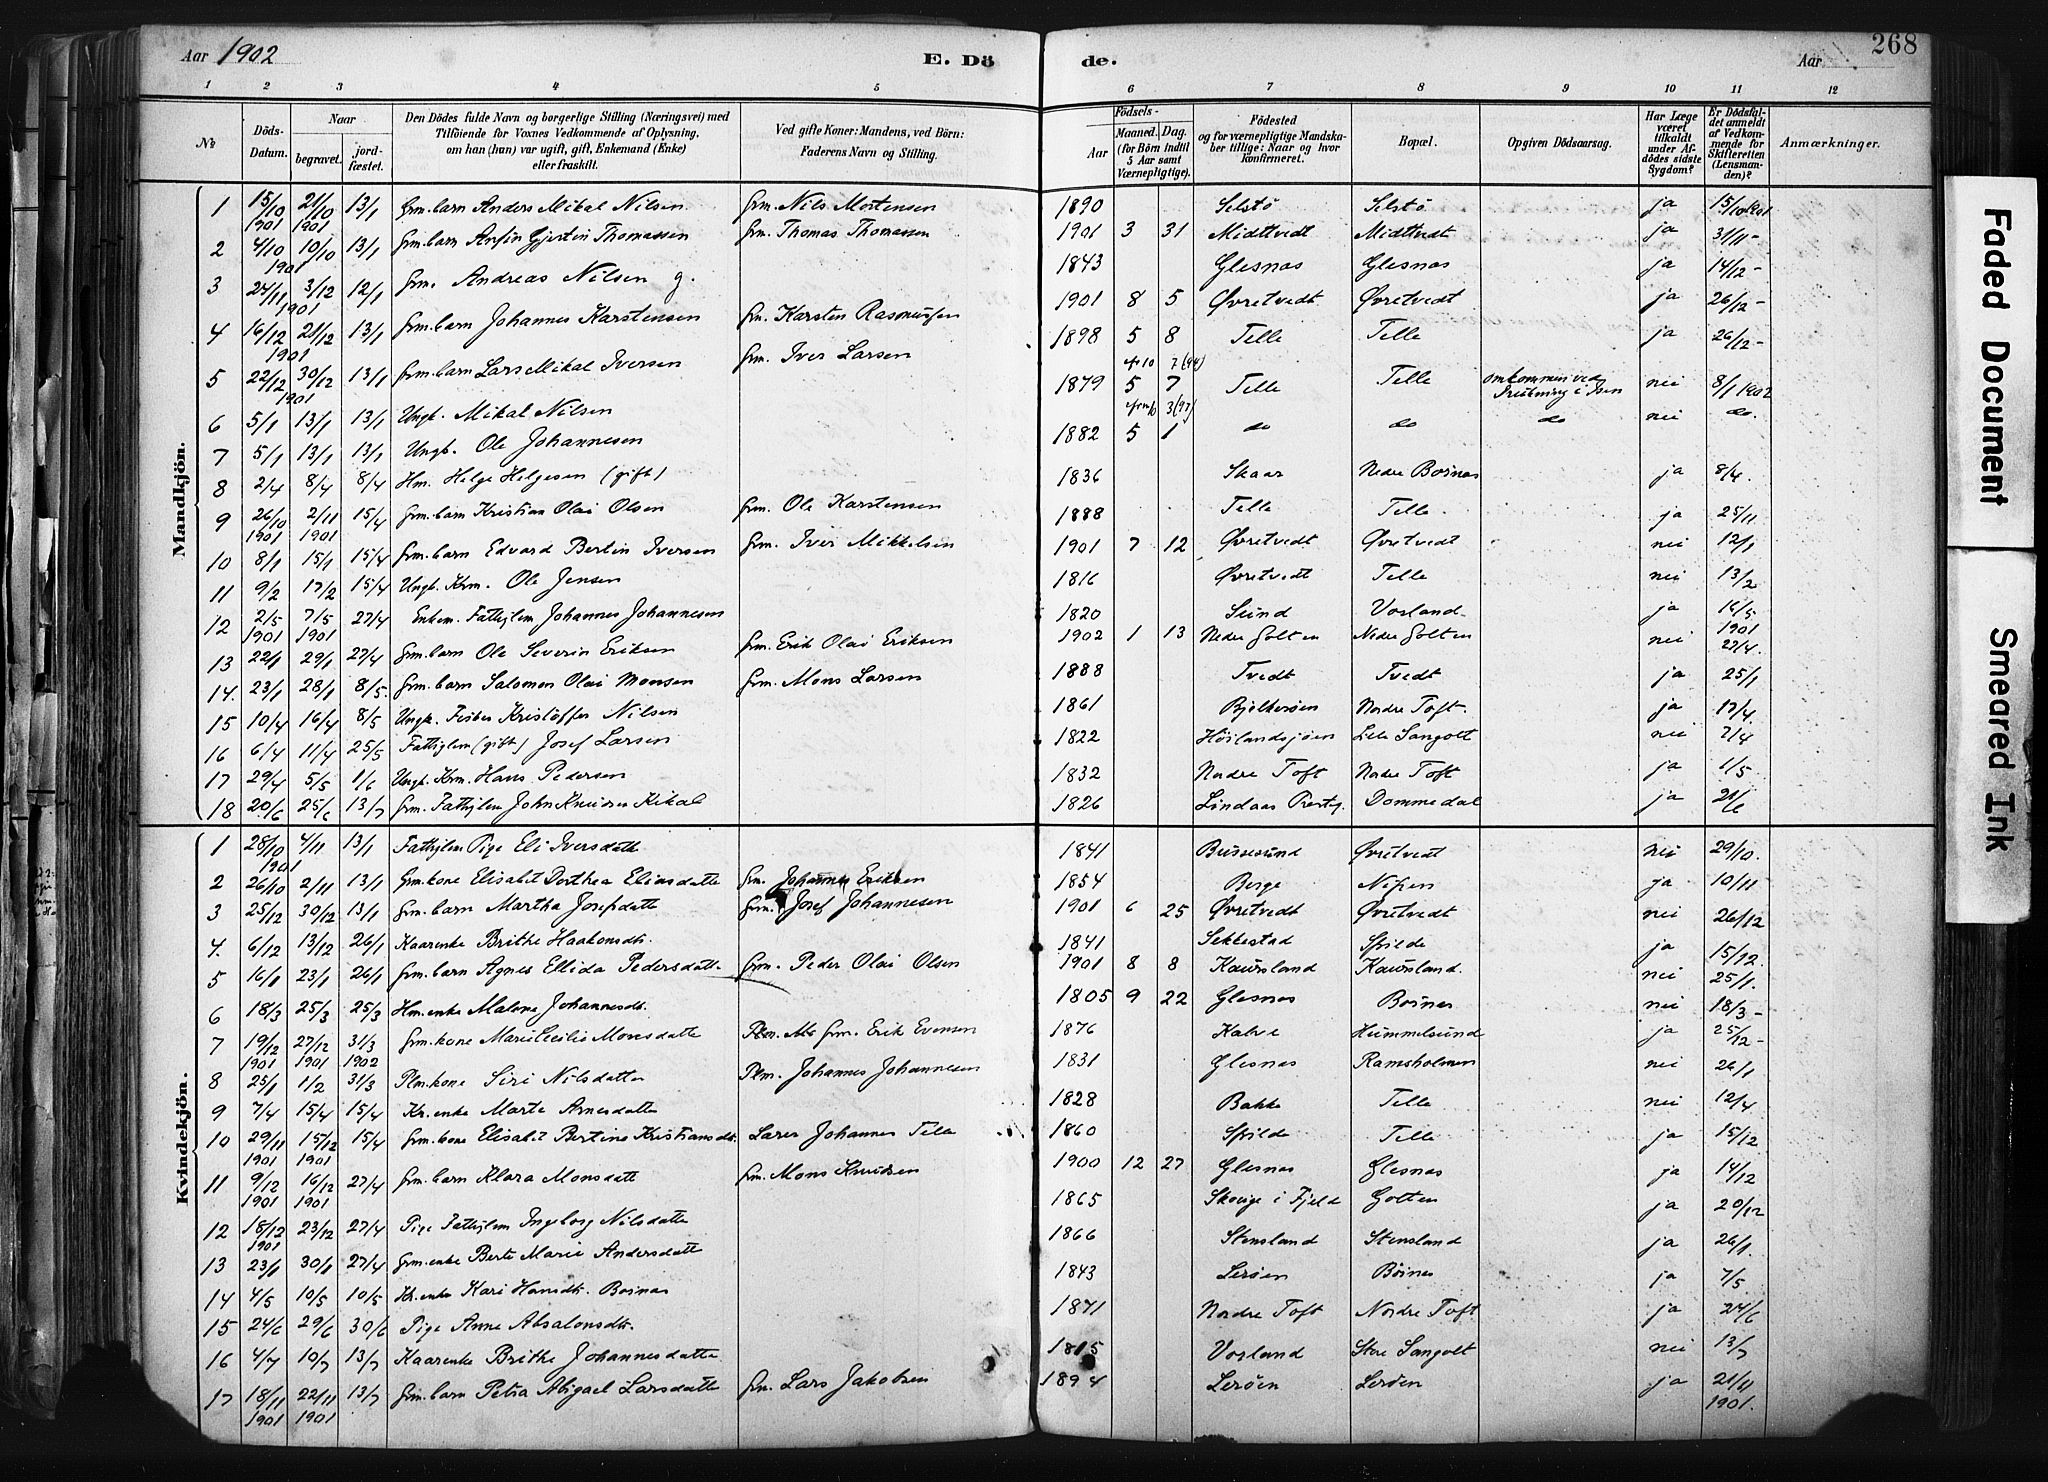 Aar 1902
E. Dö
de.
Aar
268
1 2 3 4 5 6 7 8 9 10 11 12
No
Döds-Datum.
Naar
begravet.
jord-fæstet.
Den Dödes fulde Navn og borgerlige Stilling (Næringsvei) med
Tilföiende for Voxnes Vedkommende af Oplysning,
om han (hun) var ugift, gift, Enkemand (Enke)
eller fraskilt.
Ved gifte Koner: Mandens, ved Börn:
Faderens Navn og Stilling.
Födsels-
Aar
Maaned. Dag.
(for Börn indtil
5 Aar samt
Værnepligtige).
Födested
og for værnepligtige Mandska-
ber tillige: Naar og hvor
konfirmeret.
Bopæl.
Opgiven Dödsaarsag.
Har Læge
været
tilkaldt
under Af-
dödes sidste
Sygdom?
Er Dödsfal-
det anmeldt
af Vedkom-
mende for
Skifteretten
(Lensman-
den)?
Anmærkninger.
Mandkjön.
1 15/10 1901 21/10 1901 13/1 Grm. barn Anders Mikal Nilsen Grm. Nils Mortensen 1890 Selstö Selstö ja 15/10 1901
2 4/10 1901 10/10 13/1 Grm. barn Anfin Gjertin Thomassen Grm. Thomas Thomassen 1901 3 31 Midttvedt Midttvedt ja 31/11 -
3 24/11 1901 3/12 12/1 Grm. Andreas Nilsen g. 1843 Glesnas Glesnas ja 14/12 -
4 16/12 1901 21/12 13/1 Grm. barn Johannes Karstensen Grm. Karsten Rasmussen 1901 8 5 Øvretvedt Øvretvedt ja 26/12 -
5 22/12 1901 30/12 13/1 Grm. barn Lars Mikal Iversen Grm. Iver Larsen 1898 5 8 Telle Telle ja 26/12 -
6 5/1 13/1 13/1 Ungk. Mikal Nilsen 1879 5 7 Telle Telle omkommen ved nei 8/1 1902
7 5/1 13/1 13/1 Ungk. Ole Johannesen 1882 5 1 do do do nei do.
8 2/4 8/4 8/4 Hm. Helge Helgesen (gift) 1836 Skaar Nedre Boinas ja 8/4.
9 26/10 1901 2/11 1901 15/4 Grm. barn Kristian Olai Olsen Grm. Ole Karstensen 1888 Telle Telle. ja 25/11
10 8/1 15/1 15/4 Grm. barn Edvard Bertin Iversen Grm. Iver Mikkelsen 1901 7 12 Øvretvedt Øvretvedt nei 12/1
11 9/2 17/2 15/4 Ungk. Krm. Ole Jensen 1816 Øvretvedt Telle nei 13/2
12 2/5 1901 7/5 1901 27/4 Enkem. Fattiglem Johannes Johannesen 1820 Sund Vorland ja 16/5 1901
13 22/1 29/1 27/4 Grm. barn Ole Severin Eriksen Grm. Erik Olai Eriksen 1902 1 13 Nedre Golten Nedre Golten nei 27/4.
14. 23/1 28/1 8/5. Grm. barn Salomon Olai Monsen Grm. Mons Larsen 1888 Tvedt Tvedt ja 25/1
15 10/4 16/4 8/5 Ungk. Kristoffer Nilsen 1861 Bjelkeröen Nordre Toft. ja 17/4.
16 6/4 11/4 25/5 Fattiglem (gift) Josef Larsen 1822 Lille Sangolt nei 7/4
17 29/4 5/5 1/6 Ungk. Krm. Hans Pedersen 1832 Nordre Toft Nordre Toft ja 1/5
18 20/6 25/6 13/7 Grm. Fattiglem John Knudsen 1826 Lindaas Prestg. Dommedal ja 21/6
Kvindekjön.
1 28/10 1901 4/11 13/1 Fattiglem Pige Eli Iversdatte 1841 Bussesund Øvretvedt nei 29/10.
2 26/10 2/11 13/1 Grm. kone Elisabet Dorthea Eliasdatte Grm. Johannes Eriksen 1854 Berge Nipen ja 10/11
3 25/12 30/12 13/1 Grm. barn Martha Josefsdatte Grm. Josef Johannesen 1901 6 25 Øvretvedt Øvretvedt nei 26/12
4. 6/12 13/12 26/1 Kaarenke Brithe Haakonsdt. 1841 Sekkestad Spilde ja 15/12.
5 16/1 23/1 26/1 Grm. barn Agnes Ellida Pedersdatte Grm. Peder Olai Olsen 1901 8 8 Kausland Kausland. nei 25/1.
6 18/3 25/3 25/3 Hm. enke Malene Johannesdt. 1805 9 22 Glesnas Boinas nei 18/3 -
7 19/12 1901 27/12 1901 31/3 1902 Grm. kone Marie Cecilie Monsdatte Erik Evensen 1876 Kalve Hummelsund ja 25/12 -
8 25/1 1/2 31/3 Plm. kone Siri Nilsdatter Plm. Johannes Johannesen 1831 Glesnas Ramsholmen nei 26/1
9 7/4 15/4 15/4 Kr. enke Marte Arnesdatte 1828 Bakke Telle nei 12/4
10 29/11 1901 15/12 1901 15/4 Grm. kone Elisabet Bertine Kristiansdt. Lærer Johannes Telle 1860 Spilde Telle ja 15/12
11 9/12 1901 16/12 1901 27/4 Grm. barn Klara Monsdatt Grm. Mons Knudsen 1900 12 27 Glesnas Glesnas ja 14/12
12 18/12 1901 23/12 27/4 Pige Fattiglem Ingeborg Nilsdatte 1865 Skoige i Fjeld Golten ja 20/12
13 23/1 30/1 27/4 Grm. enke Berte Marie Andersdatte 1866 Stensland Stensland ja 26/1.
14 4/5 10/5 10/5 Kr. enke Kari Hansdt. Boinas 1843 Leröen Böines ja 7/5
15 24/6 29/6 30/6 Pige Anne Absalonsdt. 1871 Nordre Toft Nordre Toft ja 24/6
16 4/7 10/7 13/7 Kaarenke Brithe Johannesdatte 1815 Vorland Store Sangolt nei 13/7
17 18/11 1901 22/11 1901 13/7 Grm. barn Petra Abigael Larsdatte Grm. Lars Jakobsen 1894 Leröen Leröen ja 21/11 1901.
Faded Document
Smeared Ink